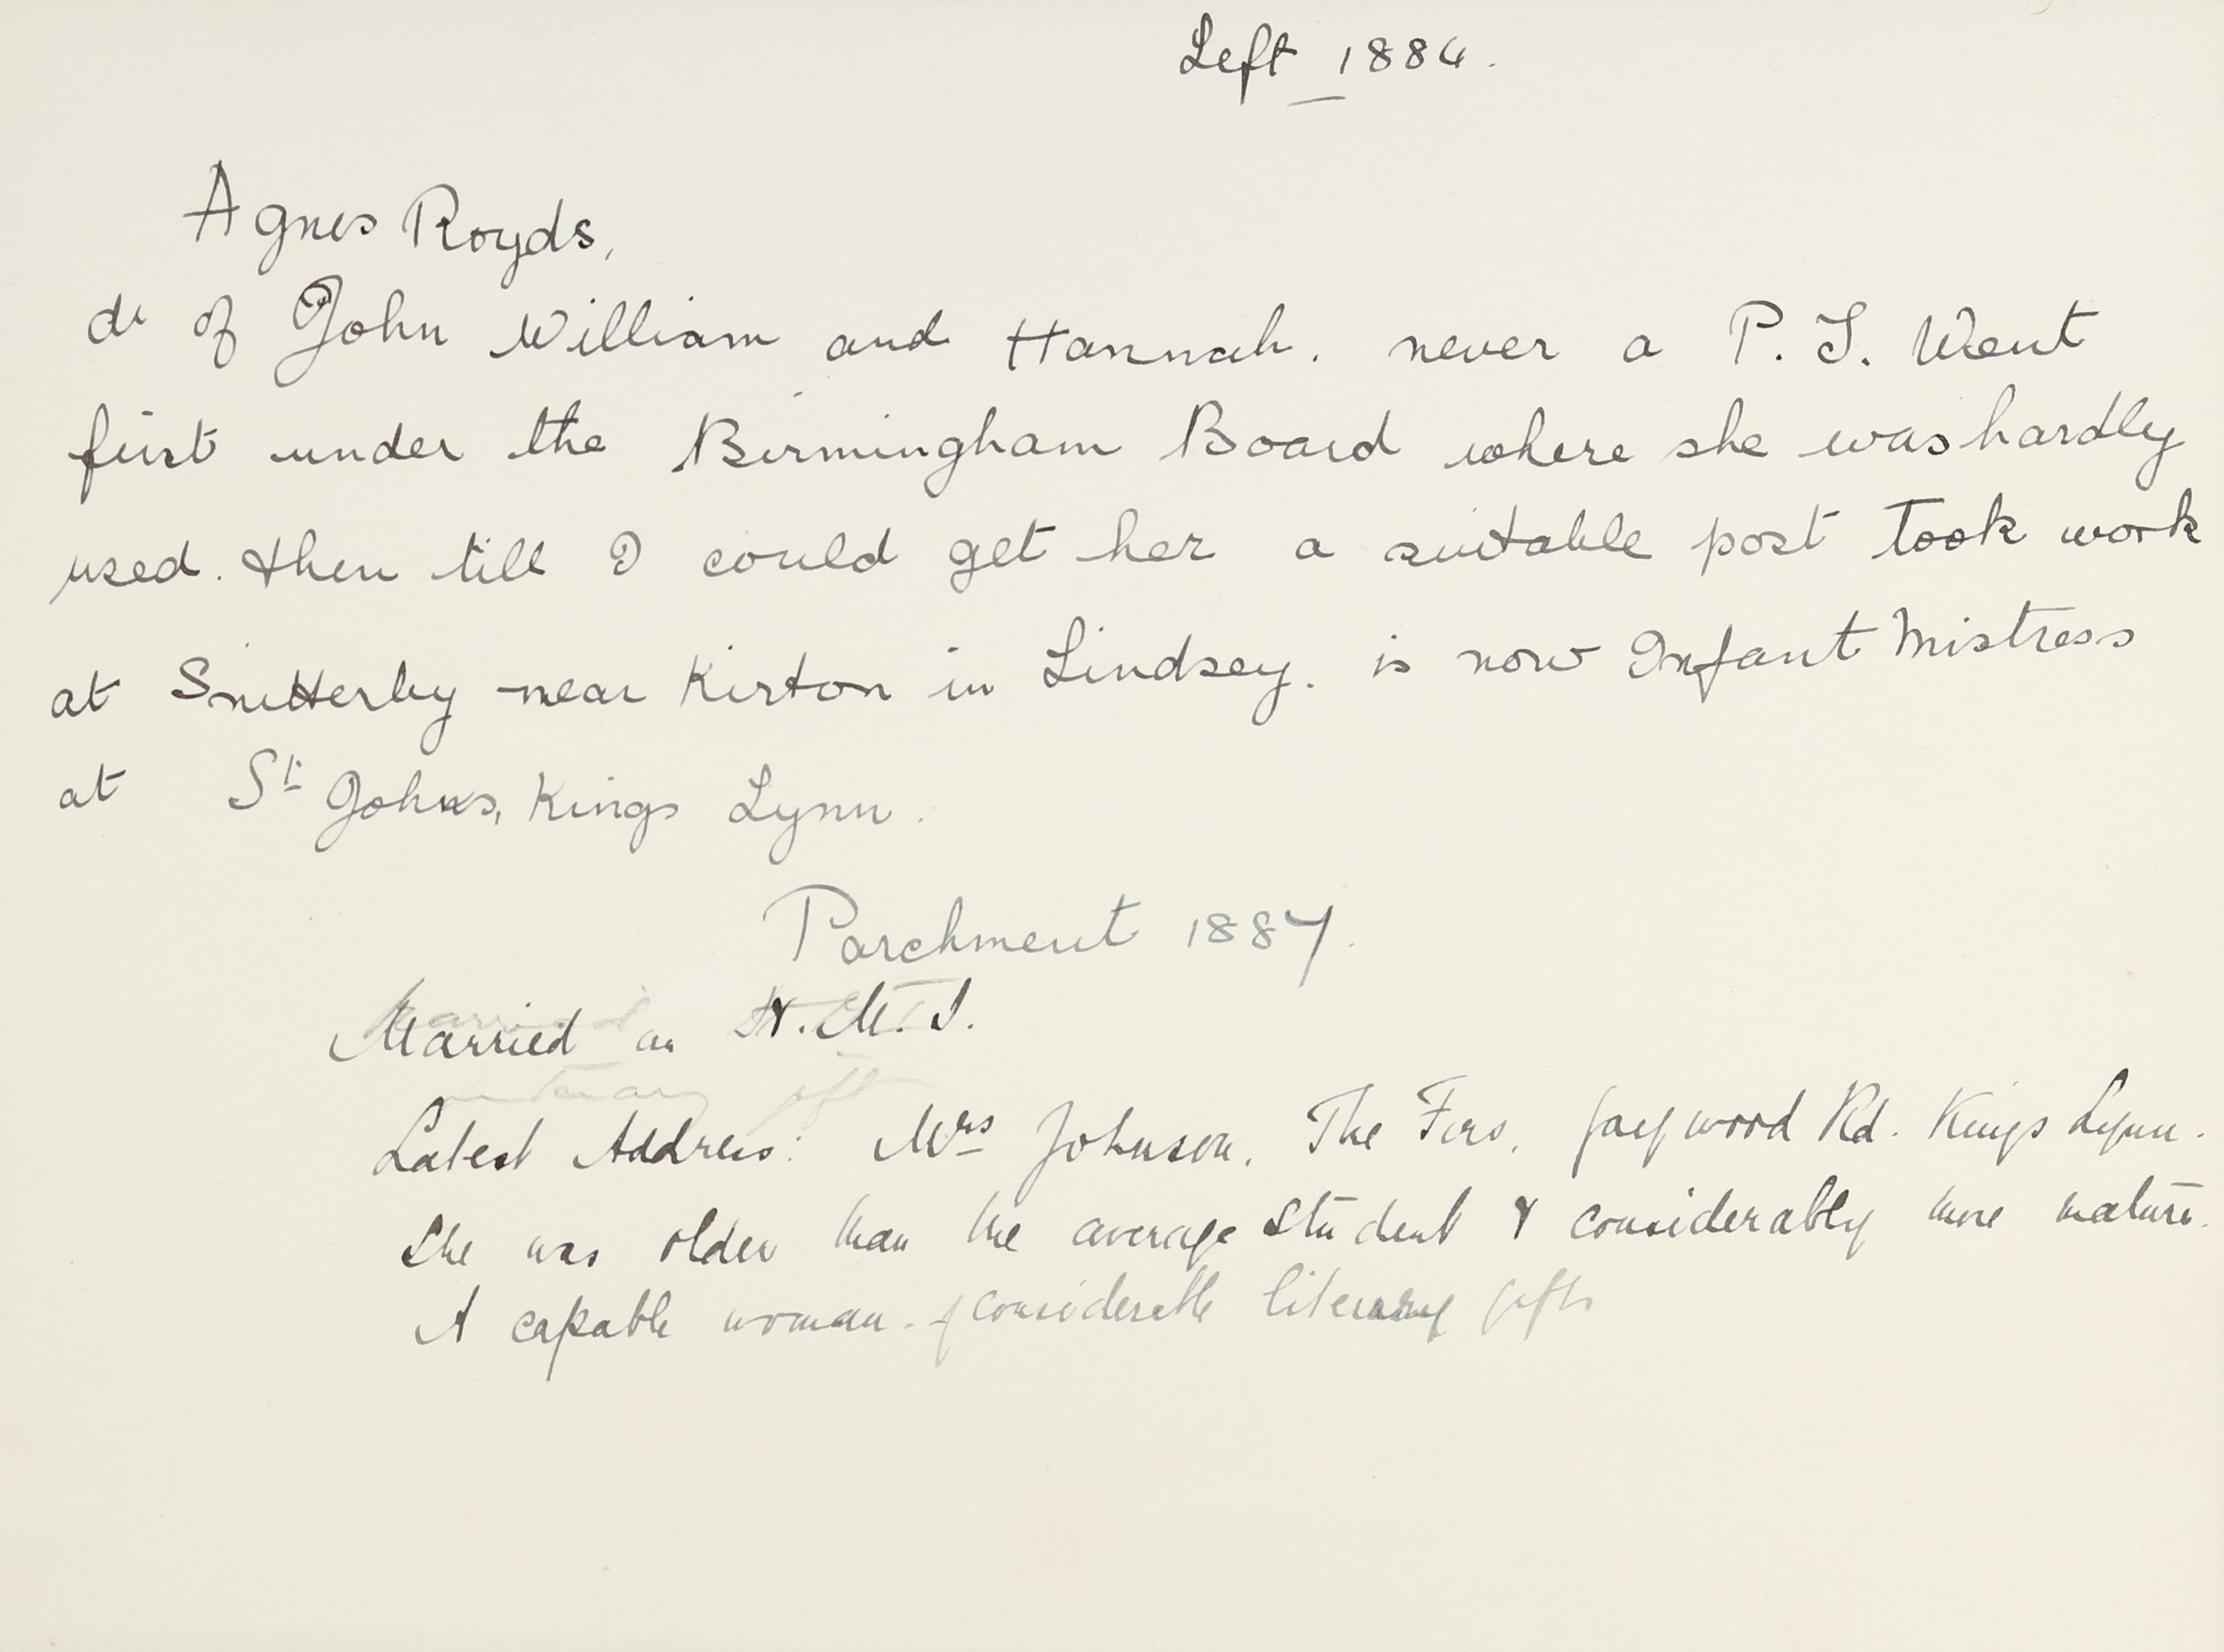 Left 1884.
Agnes Royds,
dr of John William and Hannah. never a P. T. Went
first under the Birmingham Board where she was hardly
used. then till I could get her a suitable post took work
at Snitterby near Kirton in Lindsey. is now Infant Mistress
at St Johns, Kings Lynn.
Parchment 1887.
Married an H.M.I.
Latest Address: Mrs Johnson, The Firs, Gaywood Rd. Kings Lynn.
She was older than the average student & considerably more mature.
A capable woman - of considerable literary gifts